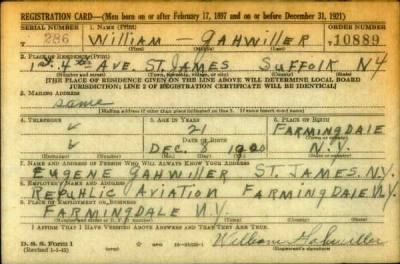 REGISTRATION CARD—(Men born on or after February 17, 1897 and on or before December 31, 1921)
SERIAL NUMBER 1. NAME (Print) ORDER NUMBER
286 William Gahwiller 10889
(First) (Middle) (Last)
2. PLACE OF RESIDENCE (Print)
1st. 4th Ave. St. James Suffolk NY
(Number and street) (Town, township, village, or city) (County) (State)
[THE PLACE OF RESIDENCE GIVEN ON THE LINE ABOVE WILL DETERMINE LOCAL BOARD
JURISDICTION; LINE 2 OF REGISTRATION CERTIFICATE WILL BE IDENTICAL]
3. MAILING ADDRESS
Same
[Mailing address if other than place indicated on line 2. If same insert word same]
4. TELEPHONE 5. AGE IN YEARS 6. PLACE OF BIRTH
21 Farmingdale
DATE OF BIRTH
Dec. 3 N.Y.
7. NAME AND ADDRESS OF PERSON WHO WILL ALWAYS KNOW YOUR ADDRESS
Eugene Gahwiller St. James, N.Y.
8. EMPLOYER'S NAME AND ADDRESS
Republic Aviation Farmingdale N.Y.
9. PLACE OF EMPLOYMENT OR BUSINESS
Farmingdale N.Y.
I AFFIRM THAT I HAVE VERIFIED ABOVE ANSWERS AND THAT THEY ARE TRUE.
D. S. S. Form 1
(Revised 1-1-42)
William Gahwiller
(Registrant's signature)